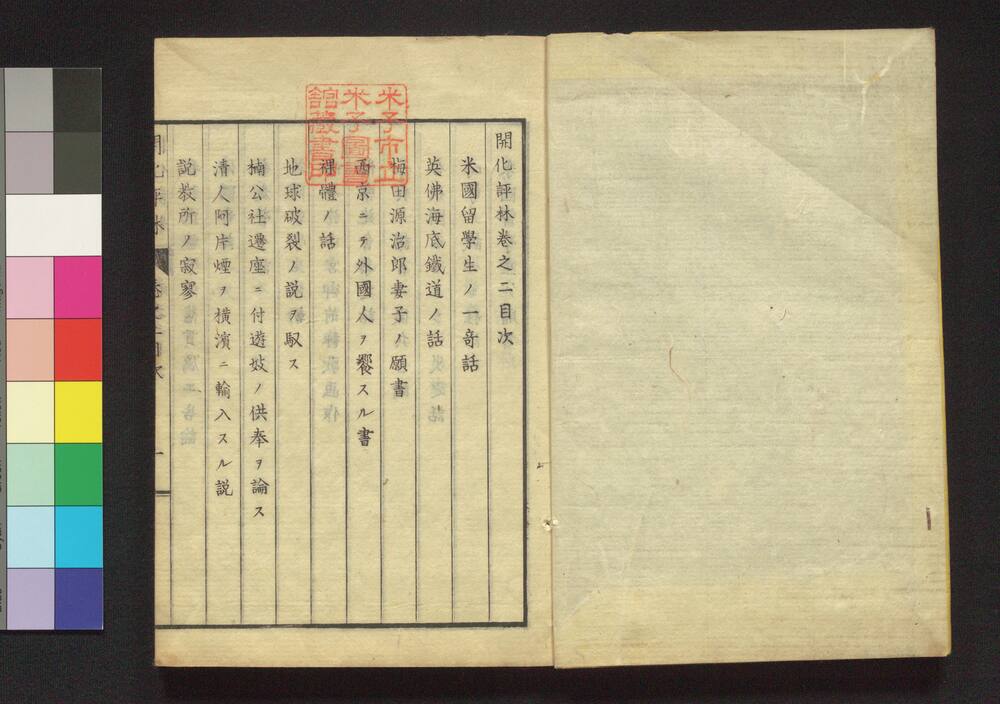 開化評林卷之二目次
米國留學生ノ一奇話
英佛海底鐵道ノ話
梅田源治郎妻子ノ願書
西京ニテ外國人ヲ饗スル書
裸體ノ話
地球破裂ノ説ヲ駁ス
楠公社遷座ニ付遊妓ノ供奉ヲ論ス
清人阿片煙ヲ横濱ニ輸入スル説
説教所ノ寂寥
開化評林 卷之二目次 一
米子市立
米子圖書
館藏書印